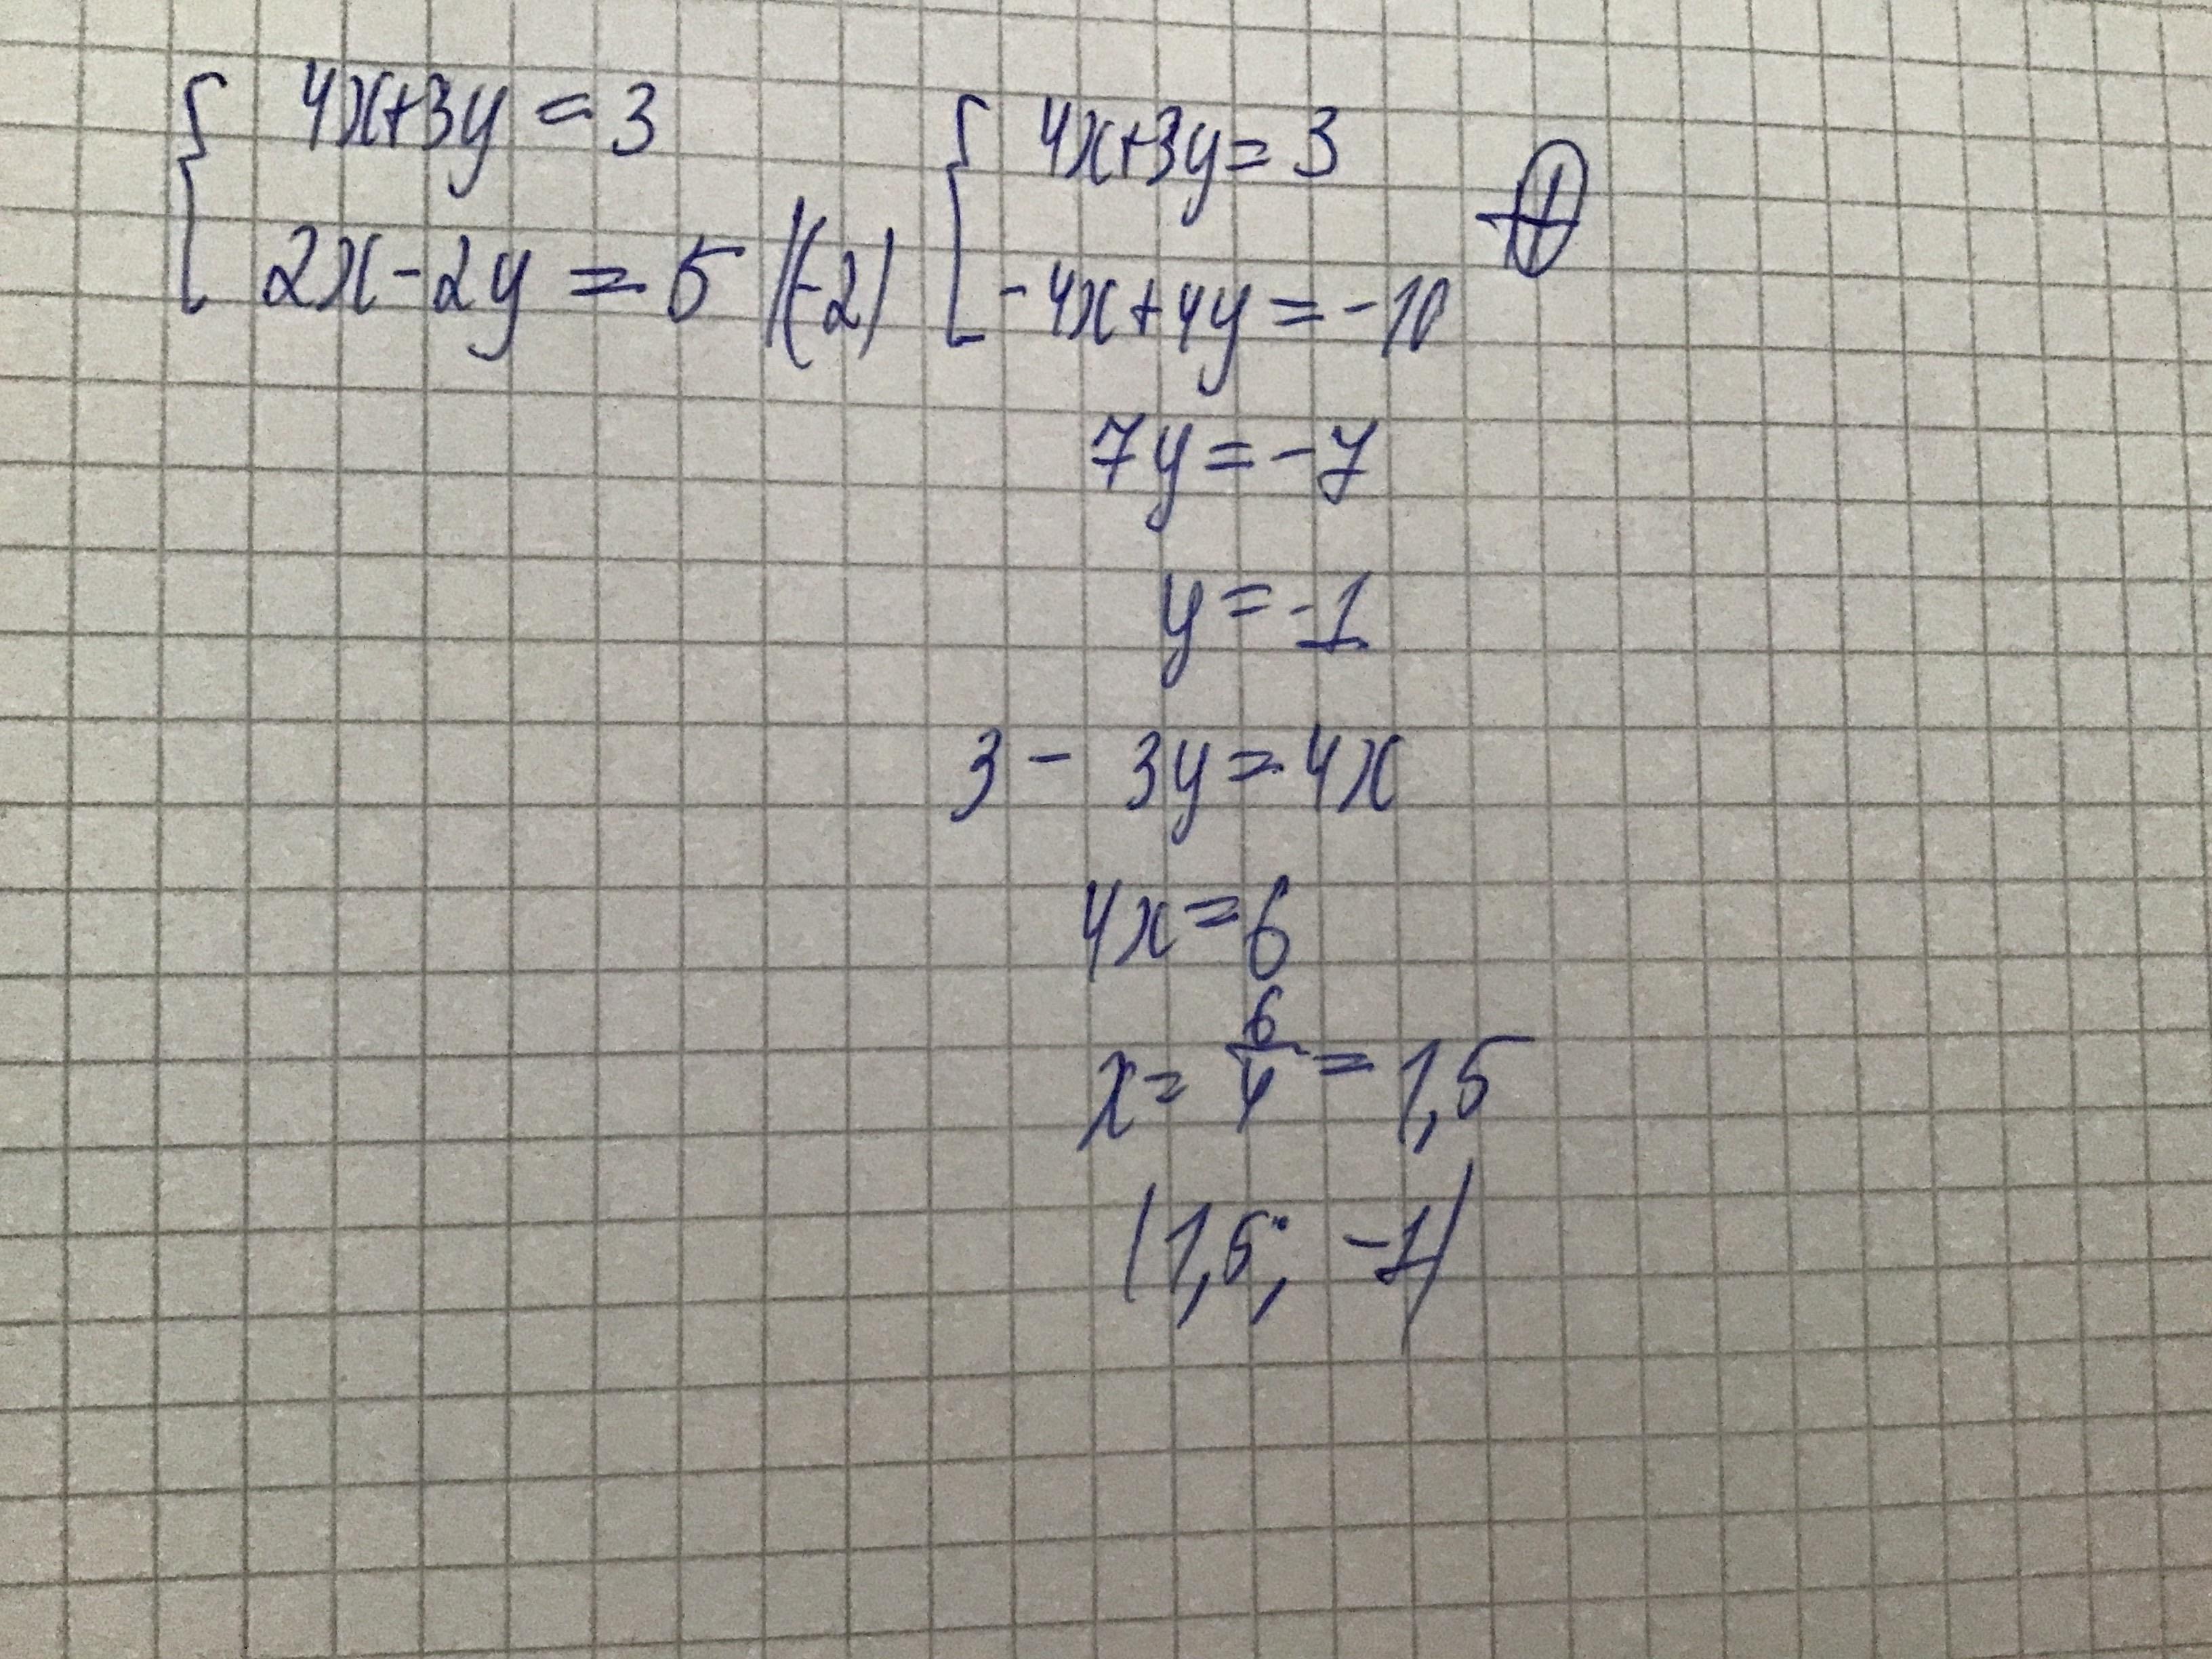 { 4x+3y = 3 { 4x+3y = 3 ⊕
2x-2y = 5 |(-2) -4x+4y = -10
7y = -7
y = -1
3 - 3y = 4x
4x = 6
x = 6/4 = 1,5
(1,5; -1)